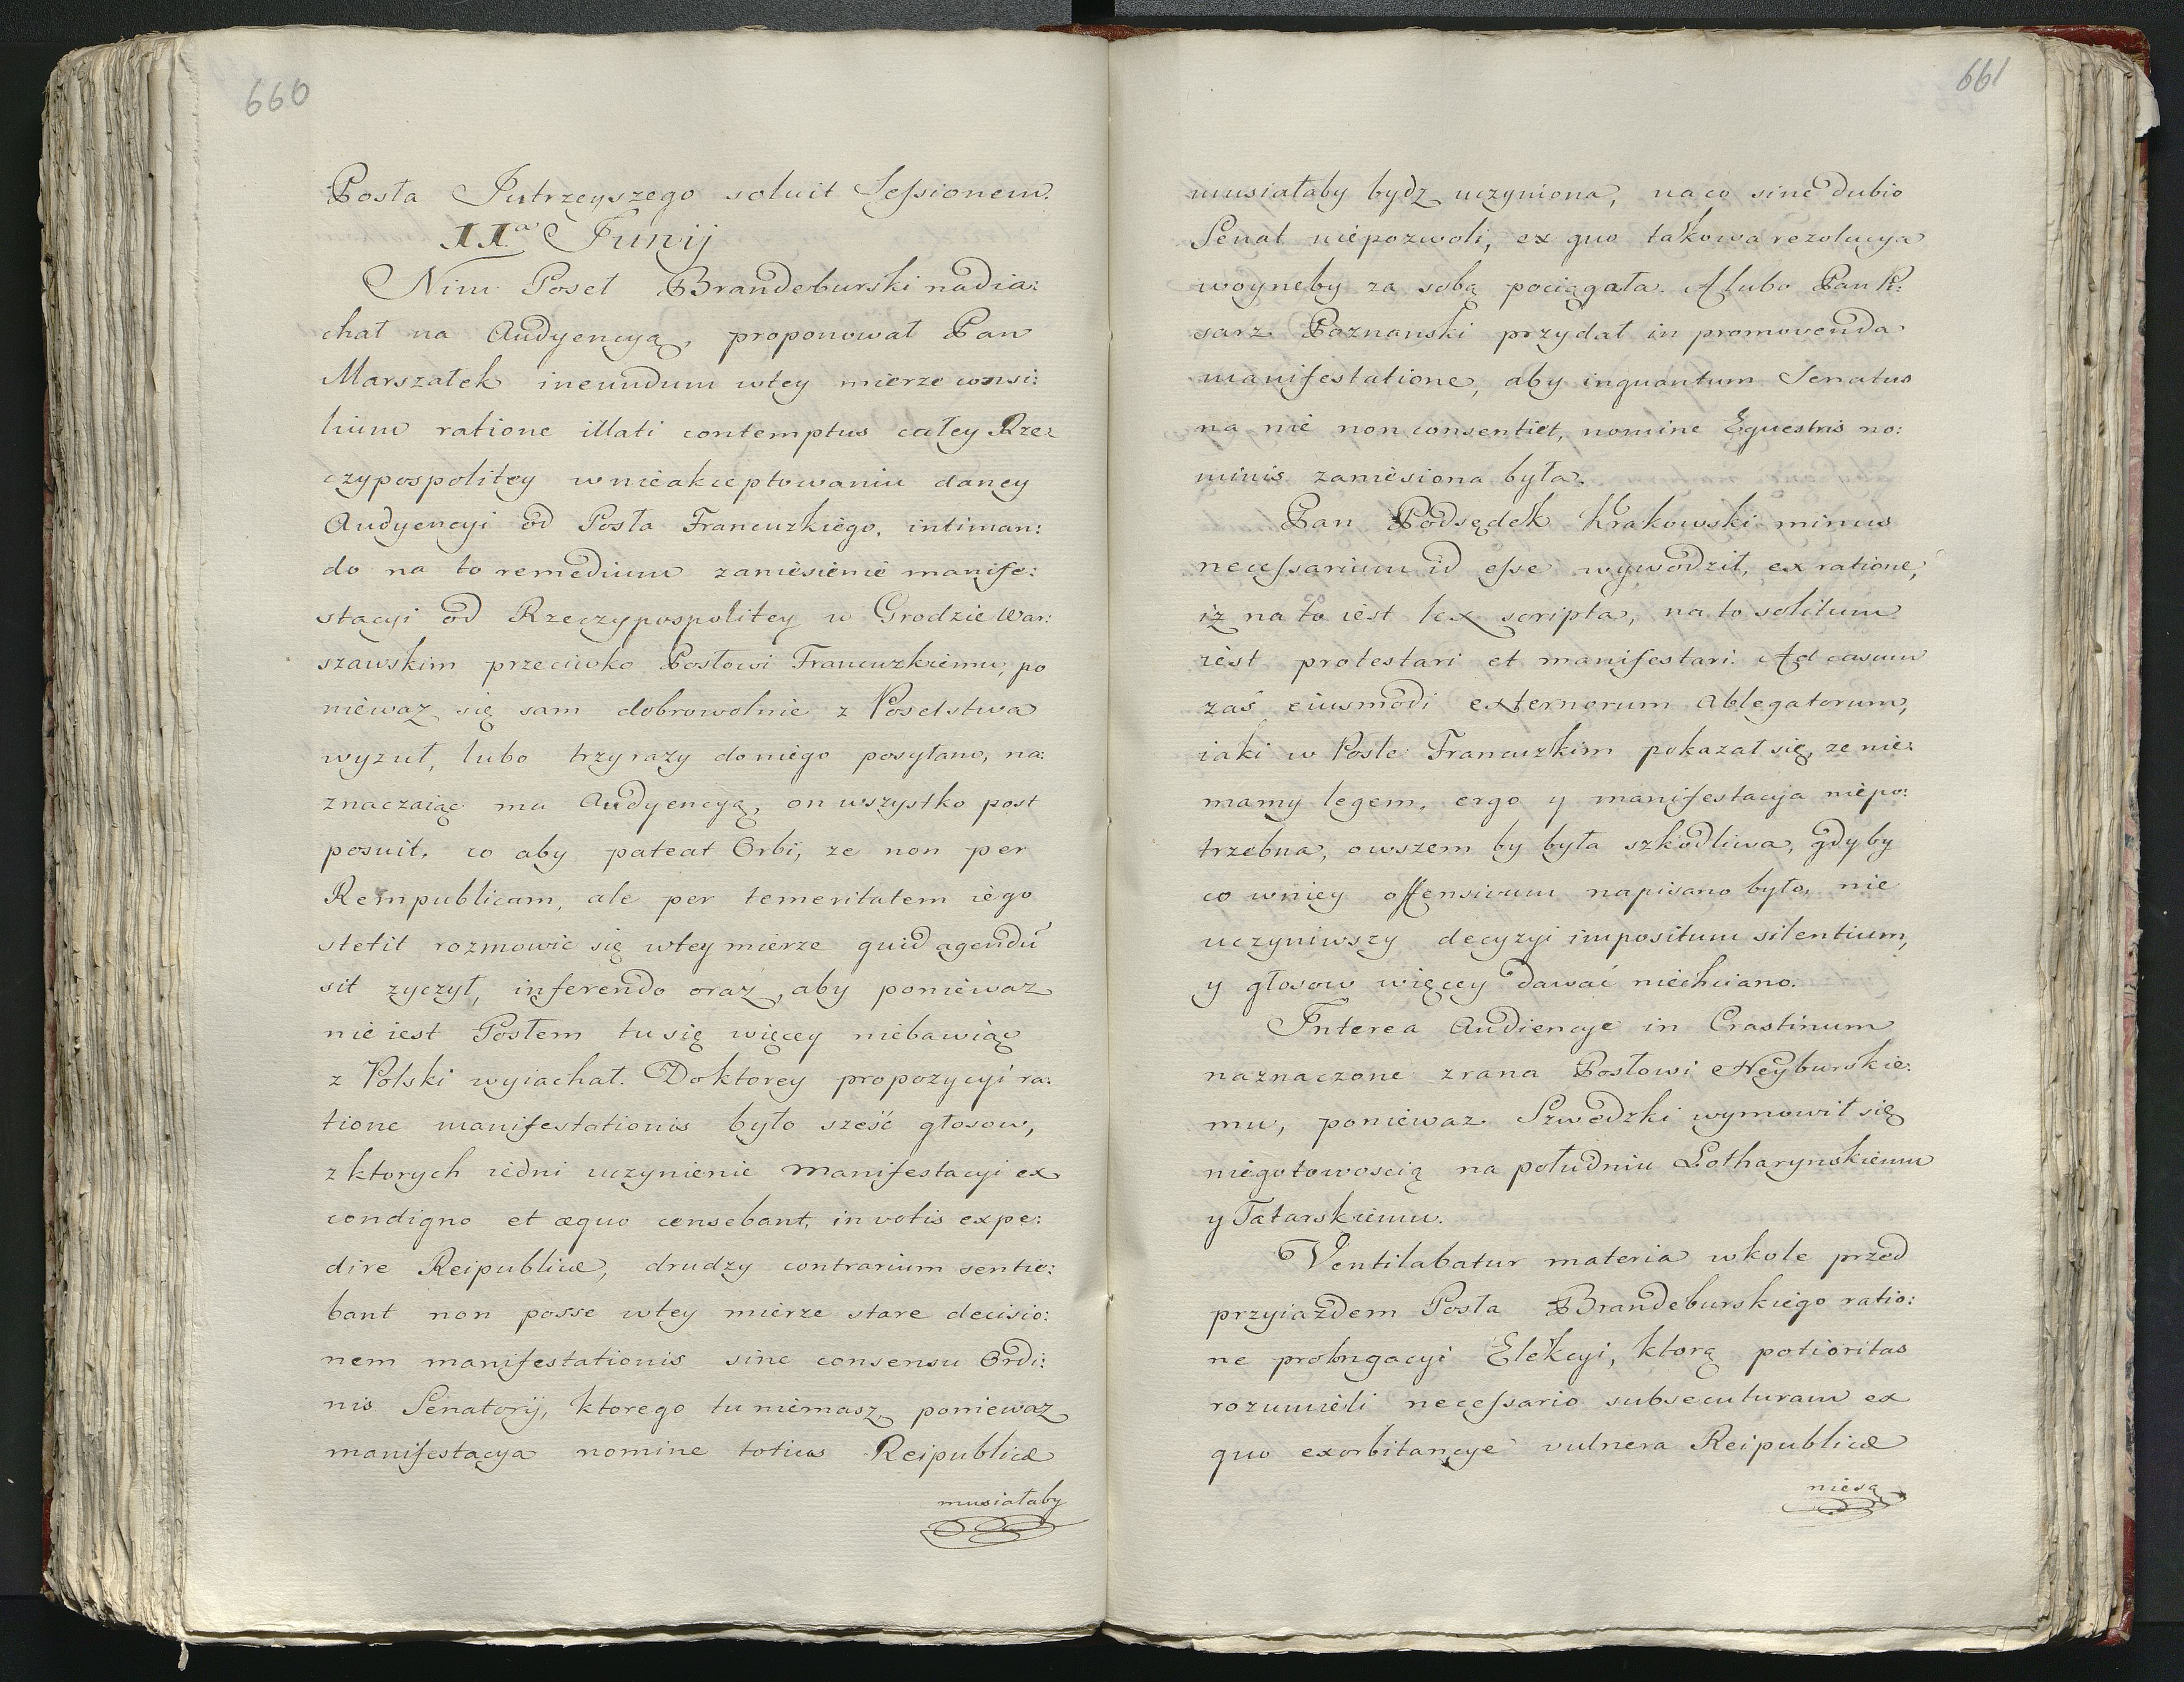 660
Posła Jutrzeyszego soluit Sessionem.
11a Junij
Nim Poseł Brandeburski nadia:
chał na Audyencyą, proponował Pan
Marszałek ineundum wtey mierze consi:
lium ratione illati contemptus całey Rze:
czypospolitey wnieakceptowaniu daney
Audyencyi od Posła Francuzkiego, intiman:
do na to remedium zaniesienie manife:
stacyi od Rzeczypospolitey w Grodzie War:
szawskim przeciwko Posłowi Francuzkiemu, po
niewaz się sam dobrowolnie z Poselstwa
wyzuł, lubo trzy razy do niego posyłano, na:
znaczaiąc mu Audyencyą, on wszystko post
posuit, co aby pateat Orbi, ze non per
Rempublicam, ale per temeritatem iego
stetit rozmowic się wtey mierze quid agendũ
sit zyczył, inferendo oraz, aby poniewaz
nie iest Posłem tu się więcey niebawiąc
z Polski wyiachał. Doktorey propozycyi ra:
tione manifestationis było sześć głosow,
z ktorych iedni uczynienie manifestacyi ex
condigno et æquo censebant, in votis expe:
dire Reipublicæ, drudzy contrarium sentie:
bant non posse wtey mierze stare decisio:
nem manifestationis sine consensu Ordi:
nis Senatorij, ktorego tu niemasz, poniewaz
manifestacya nomine totius Reipublicæ
musiałaby
661
musiałaby bydz uczyniona, na co sine dubio
Senat niepozwoli, ex quo takowa rezolucya
woyneby za sobą pociągała. A lubo Pan Pi:
sarz Poznanski przydał in promovenda
manifestatione, aby inquantum Senatus
na nie non consentiet, nomine Equestris no:
minis zaniesiona była.
Pan Podsędek Krakowski minus
necessarium id esse wywodził, ex ratione,
iz na co iest lex scripta, na to solitum
iest protestari et manifestari. Ad casum
zaś eiusmodi externorum Ablegatorum,
iaki w Posle Francuzkim pokazał się, ze nie:
mamy legem, ergo y manifestacya niepo:
trzebna, owszem by była szkodliwa, gdyby
co wniey offensivum napisano było, nie
uczyniwszy decyzyi impositum silentium,
y głosow więcey dawać niechciano.
Interea Audiencye in Crastinum
naznaczone z rana Posłowi Neyburskie:
mu, poniewaz Szwedzki wymowił się
niegotowoscią na południu Lotharynskiemu
y Tatarskiemu.
Ventilabatur materia wkole przed
przyiazdem Posła Brandeburskiego ratio:
ne prolongacyi Elekcyi, ktorą potioritas
rozumieli necessario subsecuturam ex
quo exorbitancye vulnera Reipublicæ
niesą